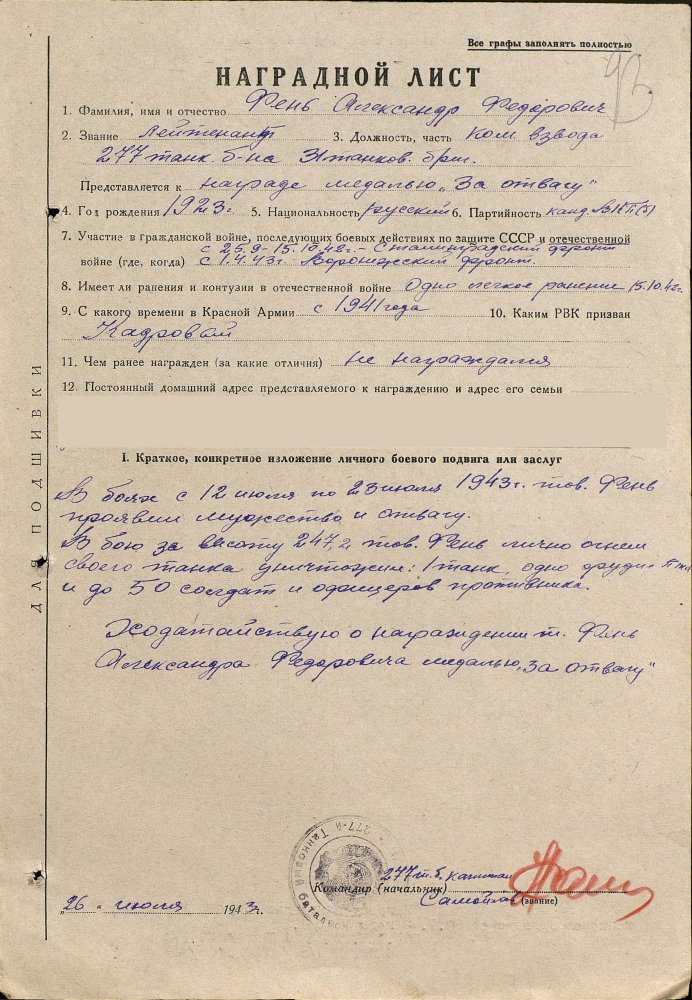 Все графы заполнять полностью
93
НАГРАДНОЙ ЛИСТ
1. Фамилия, имя и отчество Фень Александр Федорович
2. Звание Лейтенант 3. Должность, часть Ком. взвода
277 танк. б-на 31 танков. бриг.
Представляется к награде медалью „За отвагу"
4. Год рождения 1923 г. 5. Национальность русский 6. Партийность канд. ВКП(б)
7. Участие в гражданской войне, последующих боевых действиях по защите СССР и отечественной
с 25.9 - 15.10.42г. - Сталинградский фронт
войне (где, когда) с 1.4.43г. Воронежский фронт.
8. Имеет ли ранения и контузии в отечественной войне Одно легкое ранение 15.10.42г.
9. С какого времени в Красной Армии с 1941 года 10. Каким РВК призван
Кадровый
11. Чем ранее награжден (за какие отличия) не награждался
12. Постоянный домашний адрес представляемого к награждению и адрес его семьи
I. Краткое, конкретное изложение личного боевого подвига или заслуг
В боях с 12 июля по 23 июля 1943г. тов. Фень
проявил мужество и отвагу.
В бою за высоту 247,2 тов. Фень лично огнем
своего танка уничтожил: 1 танк, одно орудие
и до 50 солдат и офицеров противника.
Ходатайствую о награждении т. Фень
Александра Федоровича медалью „За отвагу"
277 т.б. капитан
Командир (начальник)
(звание)
„26" июля 1943г.
ДЛЯ ПОДШИВКИ
277-й Танковый батальон